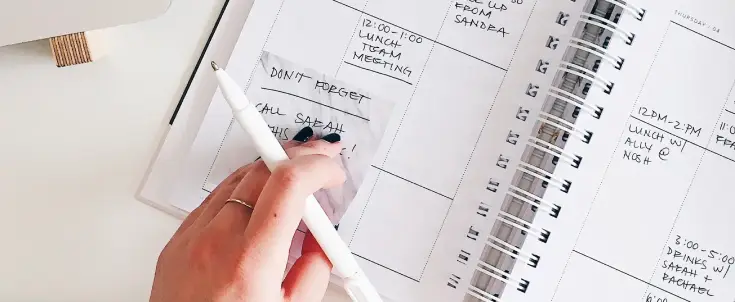 UP
FROM
SANDRA
12:00-1:00
LUNCH
TEAM
MEETING
DON'T FORGET
CALL SARAH
THIS
!
THURSDAY
12PM-2PM
LUNCH W/
ALLY @
NOSH
3:00-5:00
DRINKS W/
SARAH +
RACHAEL